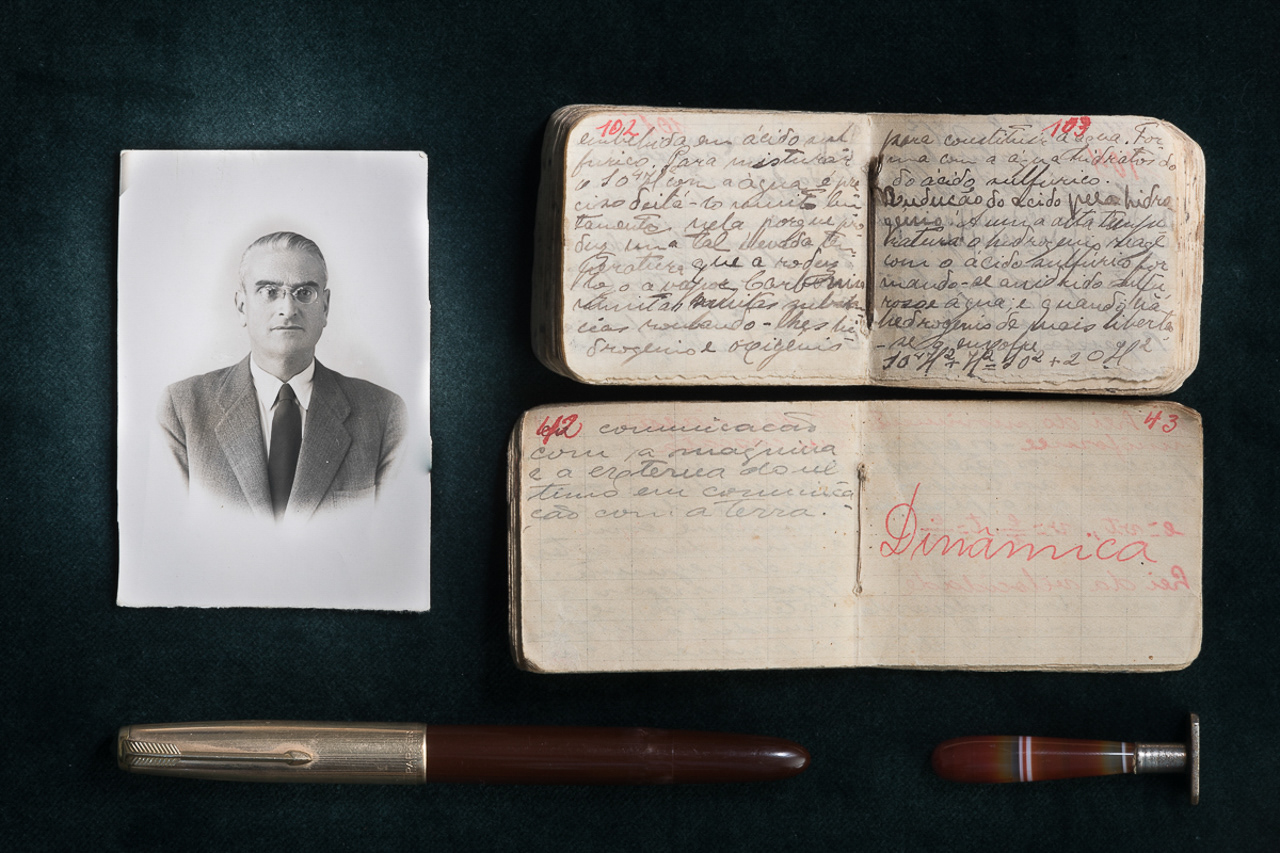 102
embebida em ácido sul
furico. Para misturar
o SO⁴H² com a água é pre
ciso deitá-lo muito len
tamente nela porque pro
duz uma tal elevada tem
peratura que a
o a vapor. Carboniza
muitas substan
cias roubando-lhes hi
drogenio e oxigenio
103
para constituir a água. For
ma com a água hidratos do
do ácido sulfurico.
Redução do ácido pelo hidro
genio: A uma alta tempe
ratura o hidrogenio reage
com o ácido sulfurico for
mando-se anidrido sulfu
roso e água; e quando há
hidrogenio de mais liberta
-se o enxofre
SO⁴H²+H²=SO²+2OH²
42
comunicacão
com a maquina
e a externa do ul
timo em comunica
ção com a terra.
43
Dinâmica
PARKER